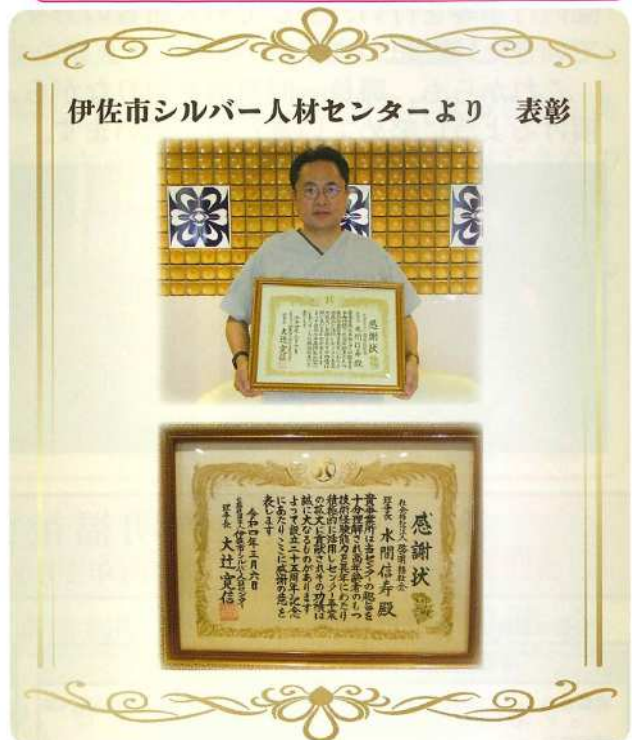 伊佐市シルバー人材センターより　表彰
感謝状
理事長 水間信寿 殿
貴事業所は当センターの趣旨を
十分理解され高年齢者のもつ
技術経験能力を長年にわたり
積極的に活用しセンター事業
の拡大に貢献されその功績は
誠に大なるものがあります
よって設立二十五周年記念
にあたりここに感謝の意を
表します
令和四年三月六日
公益社団法人伊佐市シルバー人材センター
理事長 大辻寛信